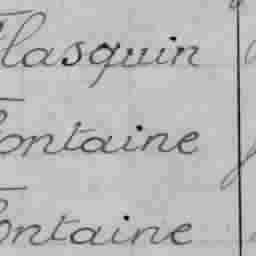 Flasquin
Fontaine
Fontaine